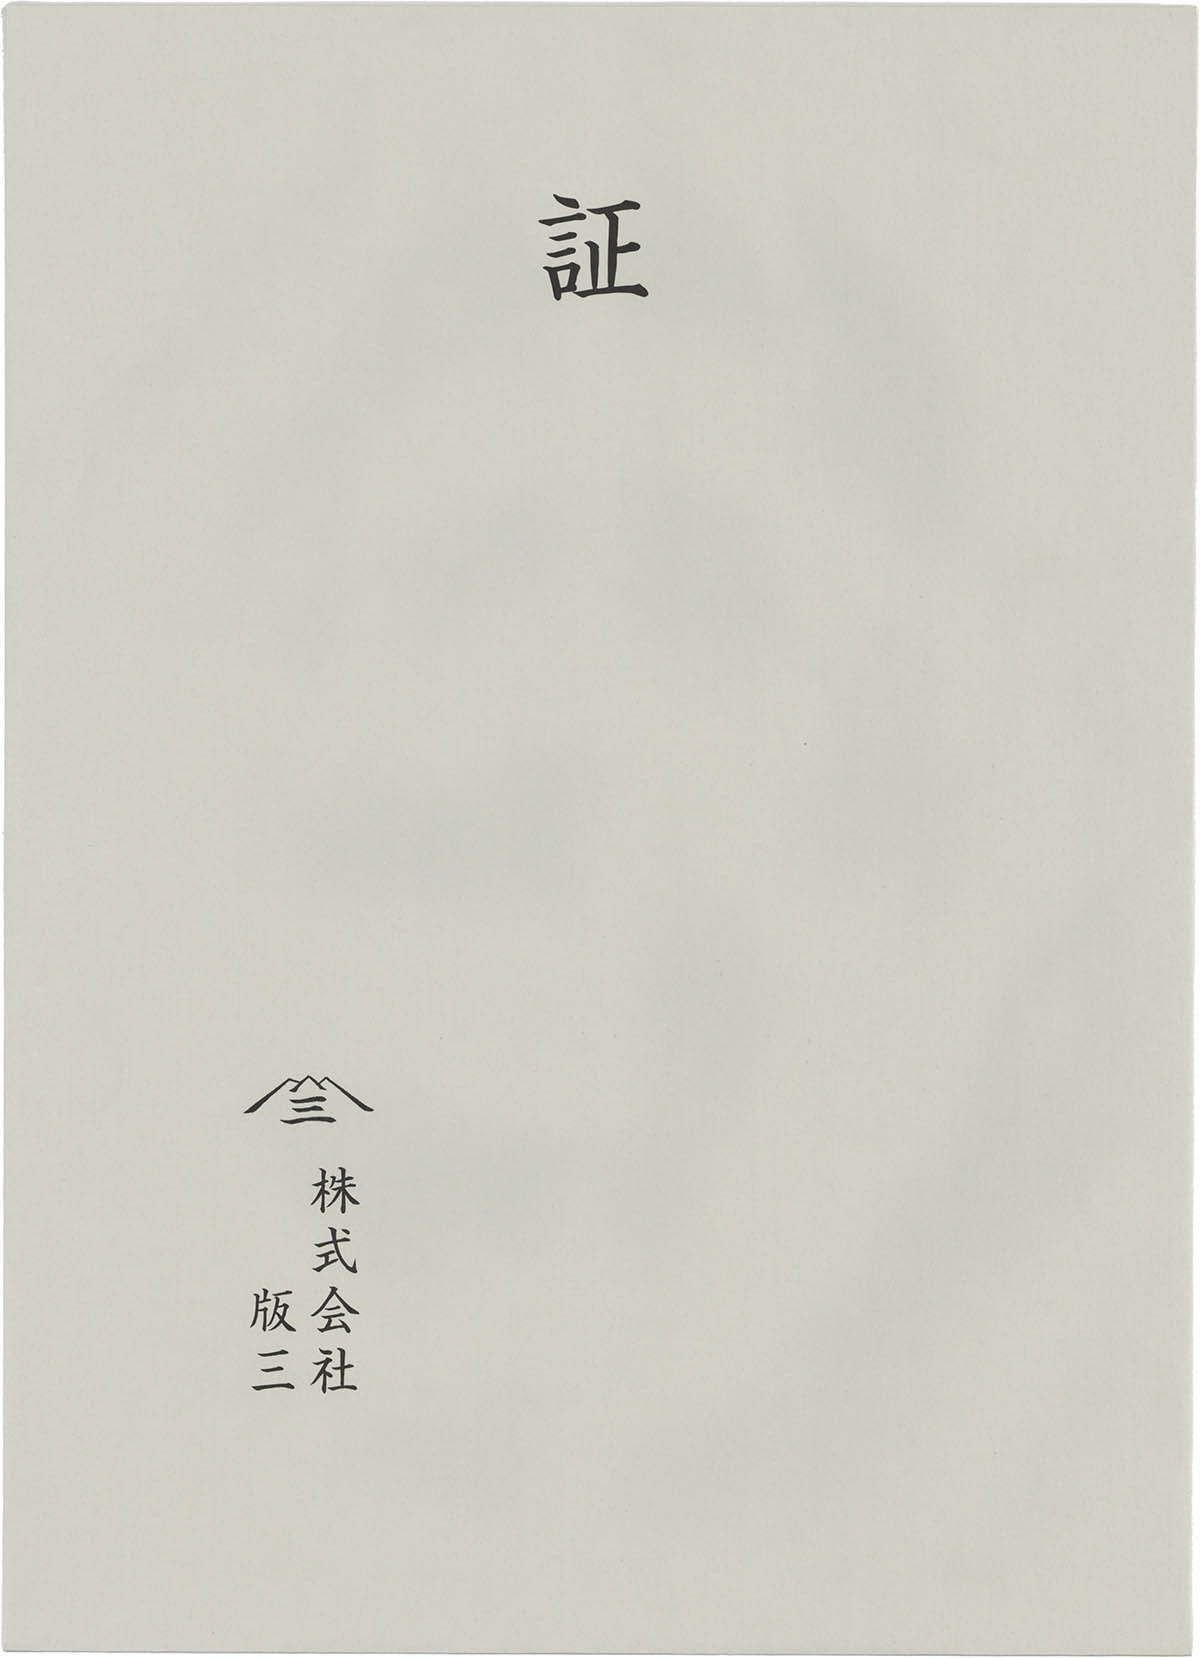 証
三
株式会社
版三